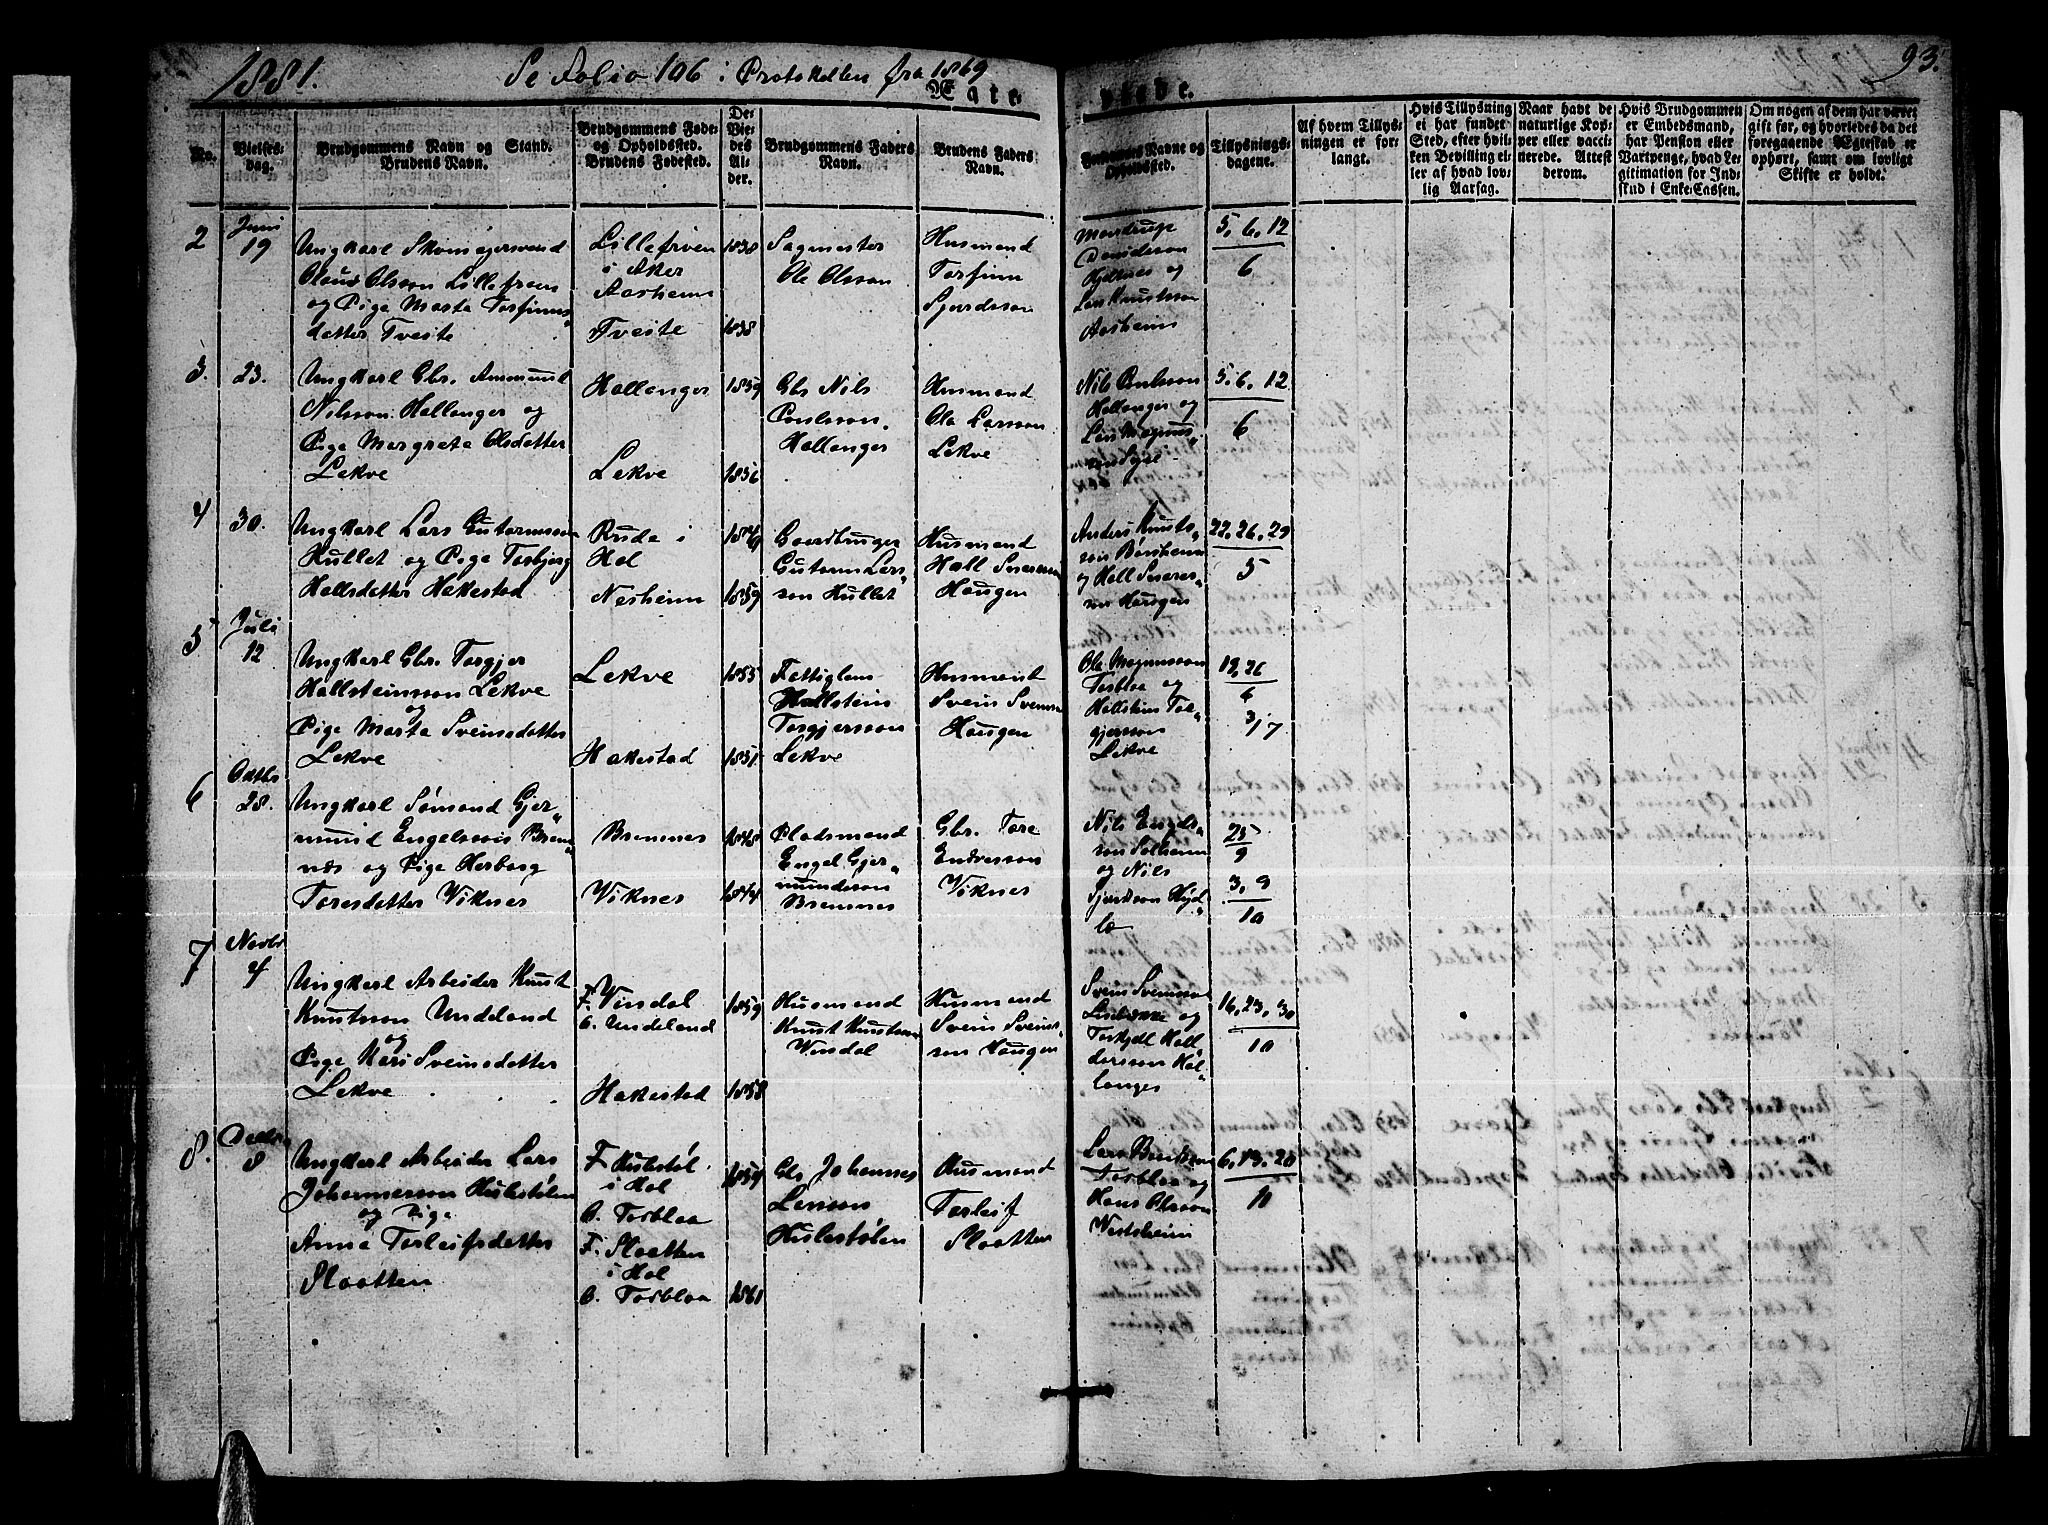 1881.
Se Folio 106 i Protokollen fra 1869
93.
Ægte
viede.
No.
Vielses-
dag.
Brudgommens Navn og Stand.
Brudens Navn.
Brudgommens Føde-
og Opholdssted.
Brudens Fødested.
De
Vie-
des
Al-
der.
Brudgommens Faders
Navn.
Brudens Faders
Navn.
Forlovernes Navne og
Opholdssted.
Tillysnings-
dagene.
Af hvem Tillys-
ningen er for-
langt.
Hvis Tillysning
ei har fundet
Sted, efter hvil-
ken Bevilling el-
ler af hvad lov-
lig Aarsag.
Naar havt de
naturlige Kop-
per eller vacci-
nerede. Attest
derom.
Hvis Brudgommen
er Embedsmand,
har Pension eller
Vartpenge, hvad Le-
gitimation for Ind-
skud i Enke-Cassen.
Om nogen af dem har været
gift før, og hvorledes da det
foregaaende Ægteskab er
ophørt, samt om lovligt
Skifte er holdt.
2
Juni
19
Ungkarl Skomagersvend
Olaus Olsson Lillefroen
og Pige Marta Torfinns-
datter Tveite
Lillefrøen
i Aker
Aasheim
Tveite
1838
1838
Sagmester
Ole Olsson
Husmand
Torfinn
Sjurdsson
Davidsson
Hjeltnes og
Lars Knutsson
Aasheim
5, 6, 12
6
3.
23.
Ungkarl Gbr. Ammund
Nilsson Hallanger og
Pige Margreta Olsdatter
Lekve
Hallanger
Lekve
1859
1856
Gbr Nils
Poulsson
Hallanger
Husmand
Ola Larsson
Lekve
Nils Poulsson
Hallanger og
Lars Magnus-
son Syse
5. 6. 12
6
4
30.
Ungkarl Lars Guttormsson
Hullet og Pige Torbjørg
Hallsdatter Hakestad
Ruda i
Hol
Nesheim
1859
Gaardbruger
Guttorm Lars-
son Hullet
Husmand
Hall Sveresson
Haugen
Anders Knuts-
son Børsheim
og Hall Sveres-
son Haugen
22, 26, 29
5
5
Juli
12
Ungkarl Gbr. Torgjer
Hallsteinsson Lekve
og
Pige Marta Sveinsdatter
Lekve
Lekve
Hakestad
1855
1851
Fattiglem
Hallstein
Torgjersson
Lekve
Husmand
Svein Sveinsson
Haugen
Ola Magnusson
Torblaa og
Hallstein Tor-
gjersson
Lekve
19, 26
6
3/7
6
Octbr
28.
Ungkarl Sømand Gjer-
mund Engelssøn Brem-
næs og Pige Herborg
Toresdatter Viknes
Bremnes
Viknes
1848
1844
Pladsmand
Engel Gjer-
mundsson
Bremnes
Gbr. Tore
Endresson
Viknes
Nils Engels-
son Solheim
og Nils
Sjurdsson Hyd-
le
25
9
3, 9
10
7
Novbr
4
Ungkarl Arbeider Knut
Knutsson Undeland
og
Pige Kari Sveinsdatter
Lekve
F. Vindal
O. Undeland
Hakestad
1859
1858
Husmand
Knut Knutsson
Vindal
Husmand
Svein Sveins-
son Haugen
Svein Sveinsson
og
Torkjel Hall-
dorsson Hal-
langer
16, 23, 30
10
8.
Decbr
8
Ungkarl Arbeider Lars
Johannesson Hulestølen
og Pige
Anna Torleifsdatter
Slaatten
F. Hulestøl
i Hol
O. Torblaa
F. Slaatten
i Hol
O. Torblaa
1859
1861
Gbr Johannes
Larsson
Hulestølen
Husmand
Torleif
Slaatten
Torblaa og
Hans Olsson
Vestsheim
6, 13, 20
11